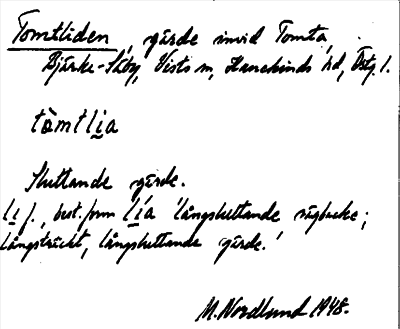 Tomtliden, gärde invid Tomta,
Bjärka-Säby, Vists sn, Hanekinds hd, Östg. l.
tòmtlia
Sluttande gärde.
li f., best. form lia 'långsluttande vägbacke;
långsträckt, långsluttande gärde.'
M. Nordlund 1948.